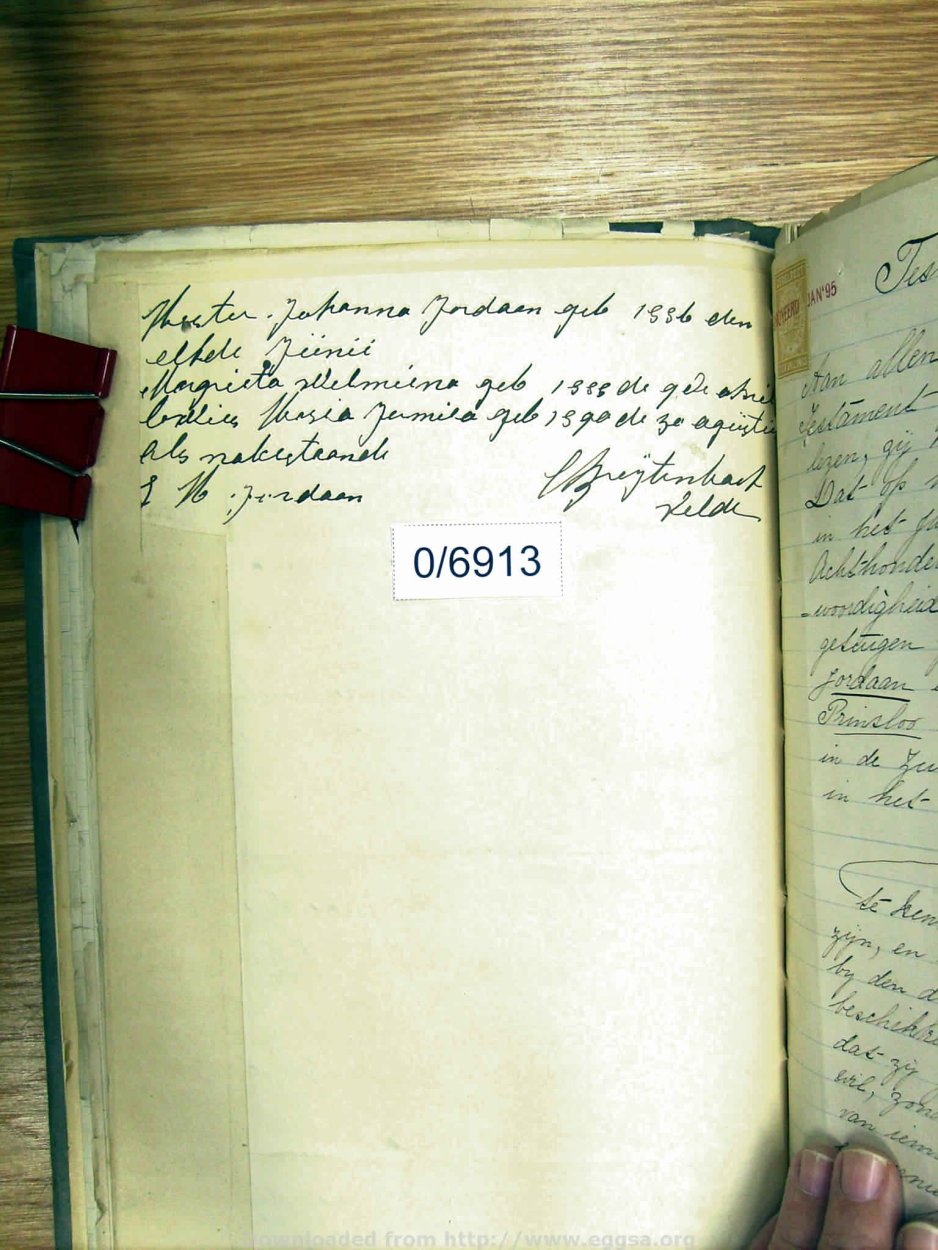 Hester Johanna Jordaan geb 1886 den
elfde Junii
Magrieta Wilmiena geb 1888 de 9de
Maria geb 1890 de 30
als
E M Jordaan
C Breytenbach
Velde
0/6913
JAN'95
Tes
Aan allen
Testament
lezen, zij
Dat op
in het
Achthonde
=woordigheid
getuigen
Jordaan
Prinsloo
in de Zu
in het
te ken
zijn, en
by den d
beschikk
dat zij
wil, zon
van iem
Downloaded from http://www.eggsa.org